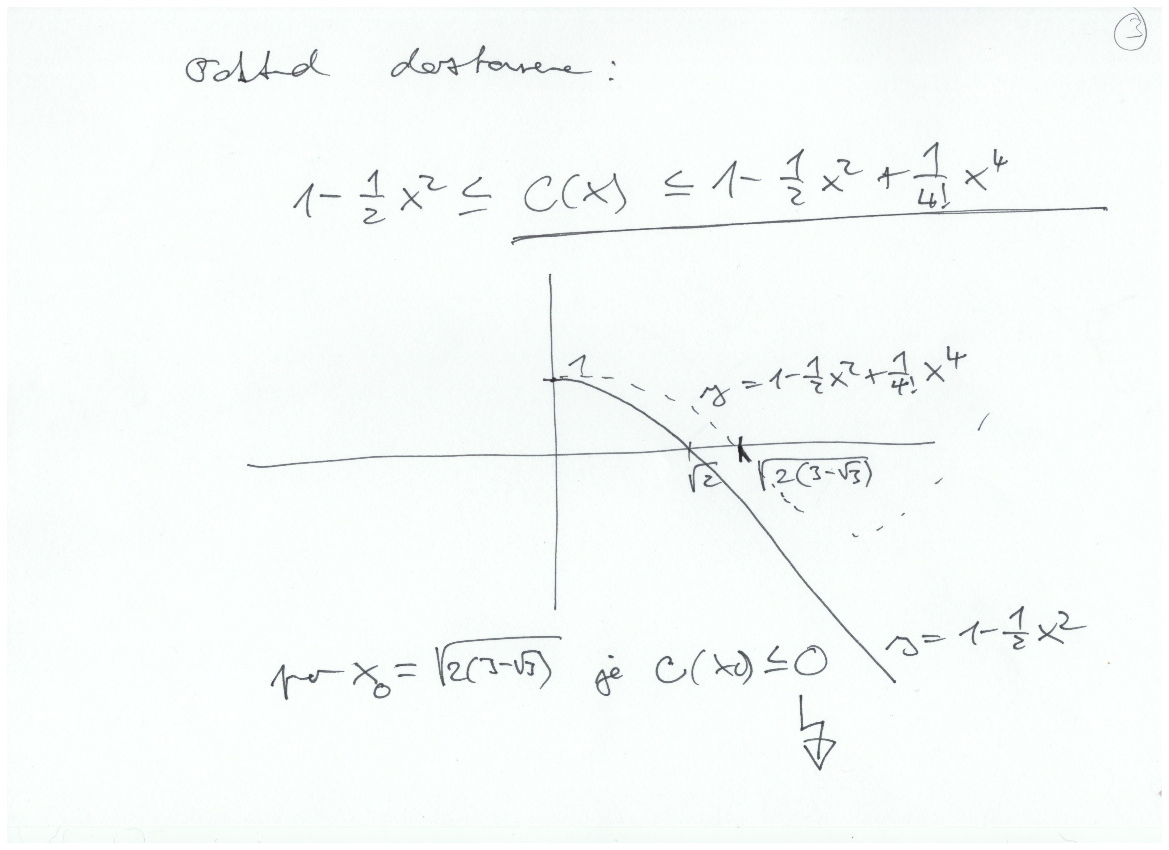 3
Odtud dostaneme :
1 - 1/2 x² ≤ C(x) ≤ 1 - 1/2 x² + 1/4! x⁴
1
y = 1 - 1/2 x² + 1/4! x⁴
√2 √2(3-√3)
y = 1 - 1/2 x²
pro x₀ = √2(3-√3) je C(x₀) ≤ 0